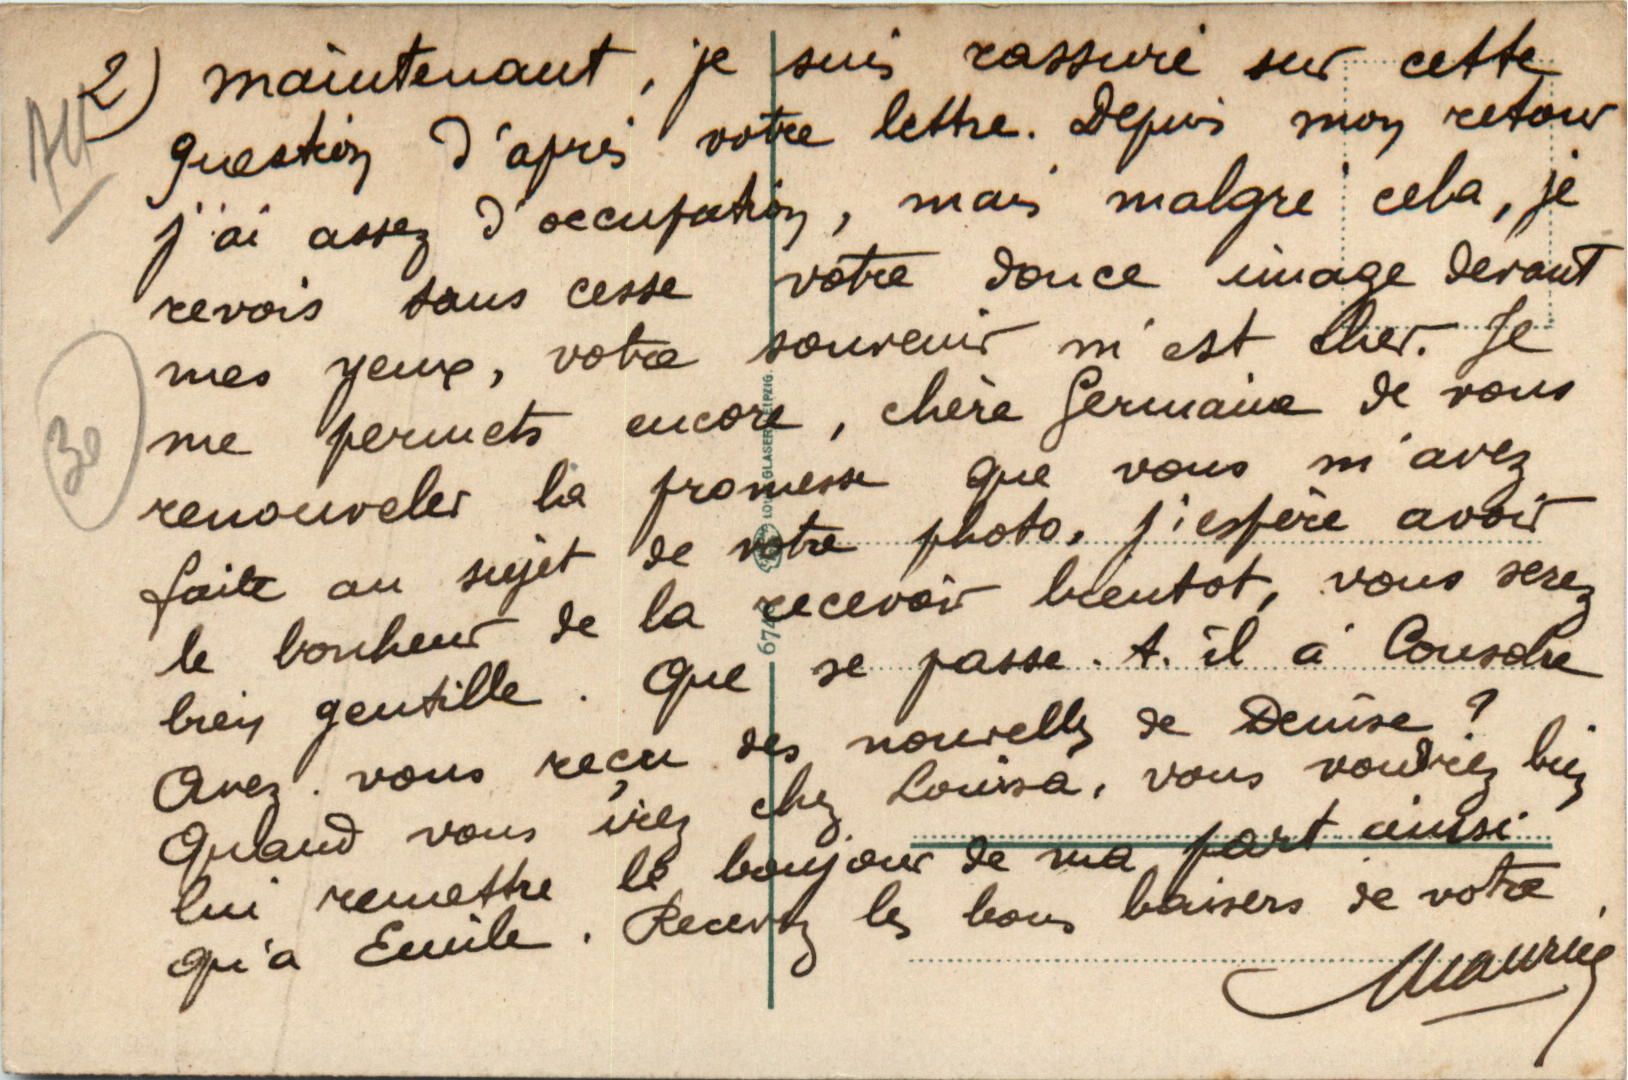 2) maintenant, je suis rassuré sur cette
question d'après votre lettre. Depuis mon retour
j'ai assez d'occupation, mais malgré cela, je
revois sans cesse votre douce image devant
mes yeux, votre souvenir m'est cher. Je
me permets encore, chère Germaine de vous
renouveler la promesse que vous m'avez
faite au sujet de votre photo, j'espère avoir
le bonheur de la recevoir bientot, vous serez
bien gentille. Que se passe-t-il à Cousolre
Avez-vous reçu des nouvelles de Denise ?
Quand vous irez chez Louisa, vous voudriez bien
lui remettre le bonjour de ma part ainsi
qu'a Emile. Recevez les bons baisers de votre
Maurice
30
LOUIS GLASER LEIPZIG.